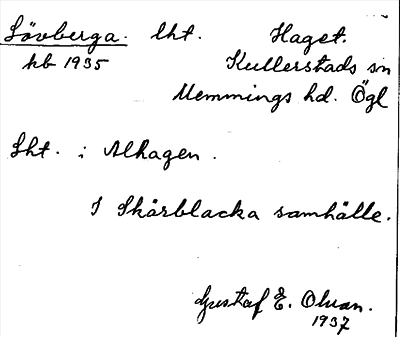 Lövberga. lht. Haget.
hb 1935 Kullerstads sn
Memmings hd. Ögl
Lht. i Alhagen.
I Skärblacka samhälle.
Gustaf E. Olson.
1937